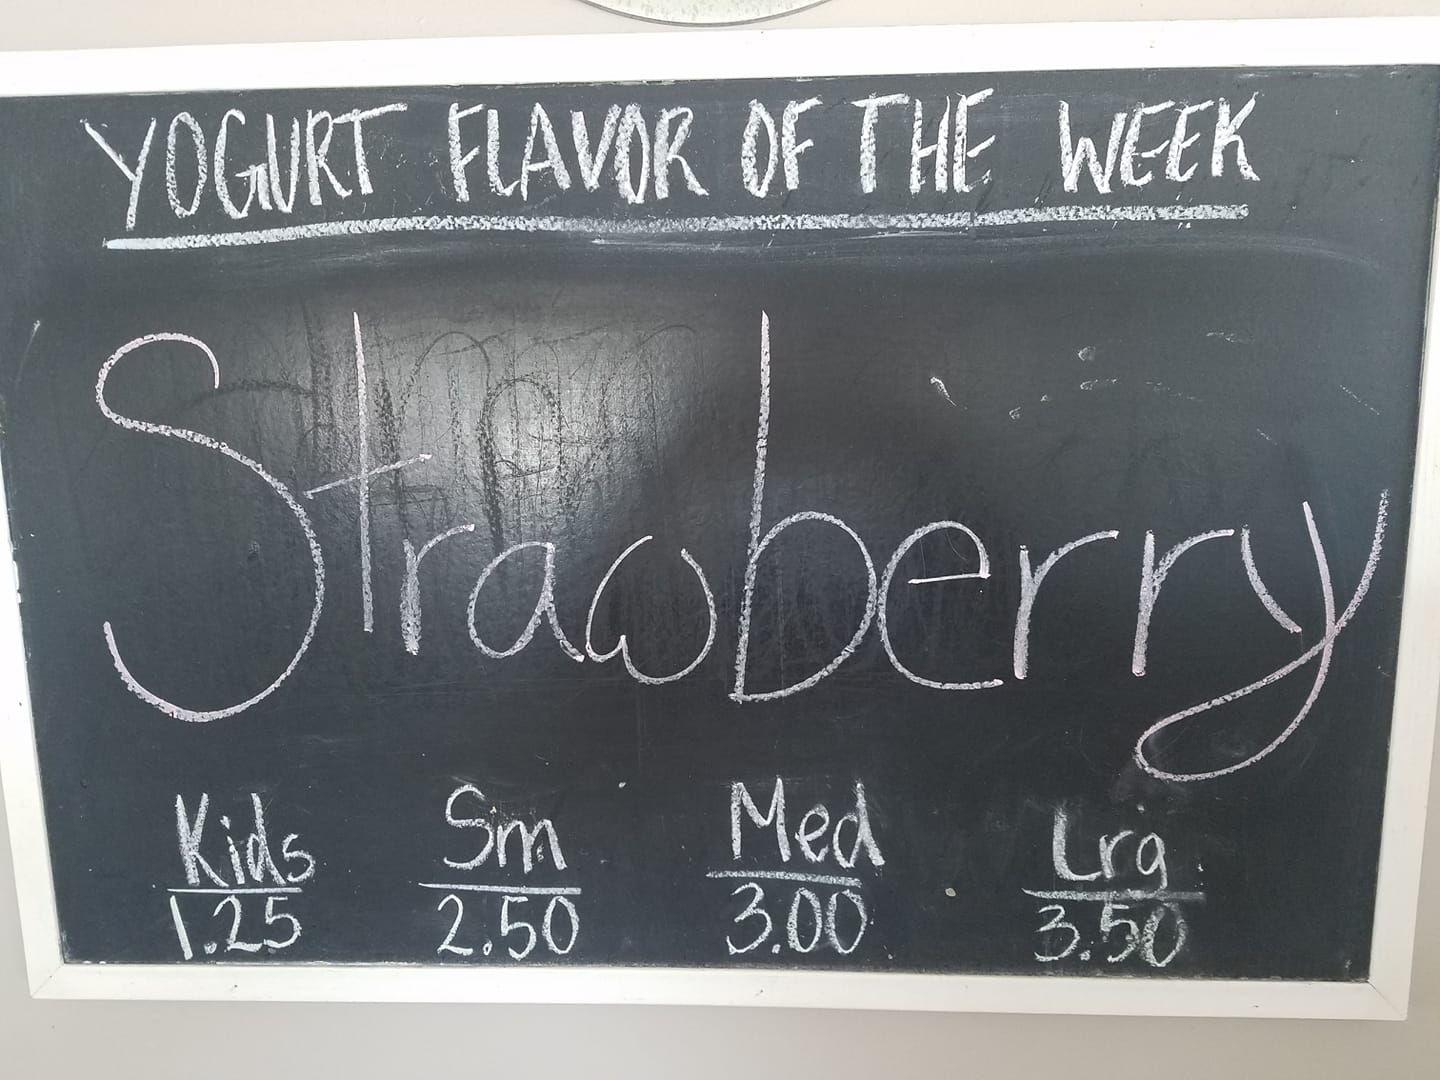 YOGURT FLAVOR OF THE WEEK
Strawberry
Kids Sm Med Lrg
1.25 2.50 3.00 3.50